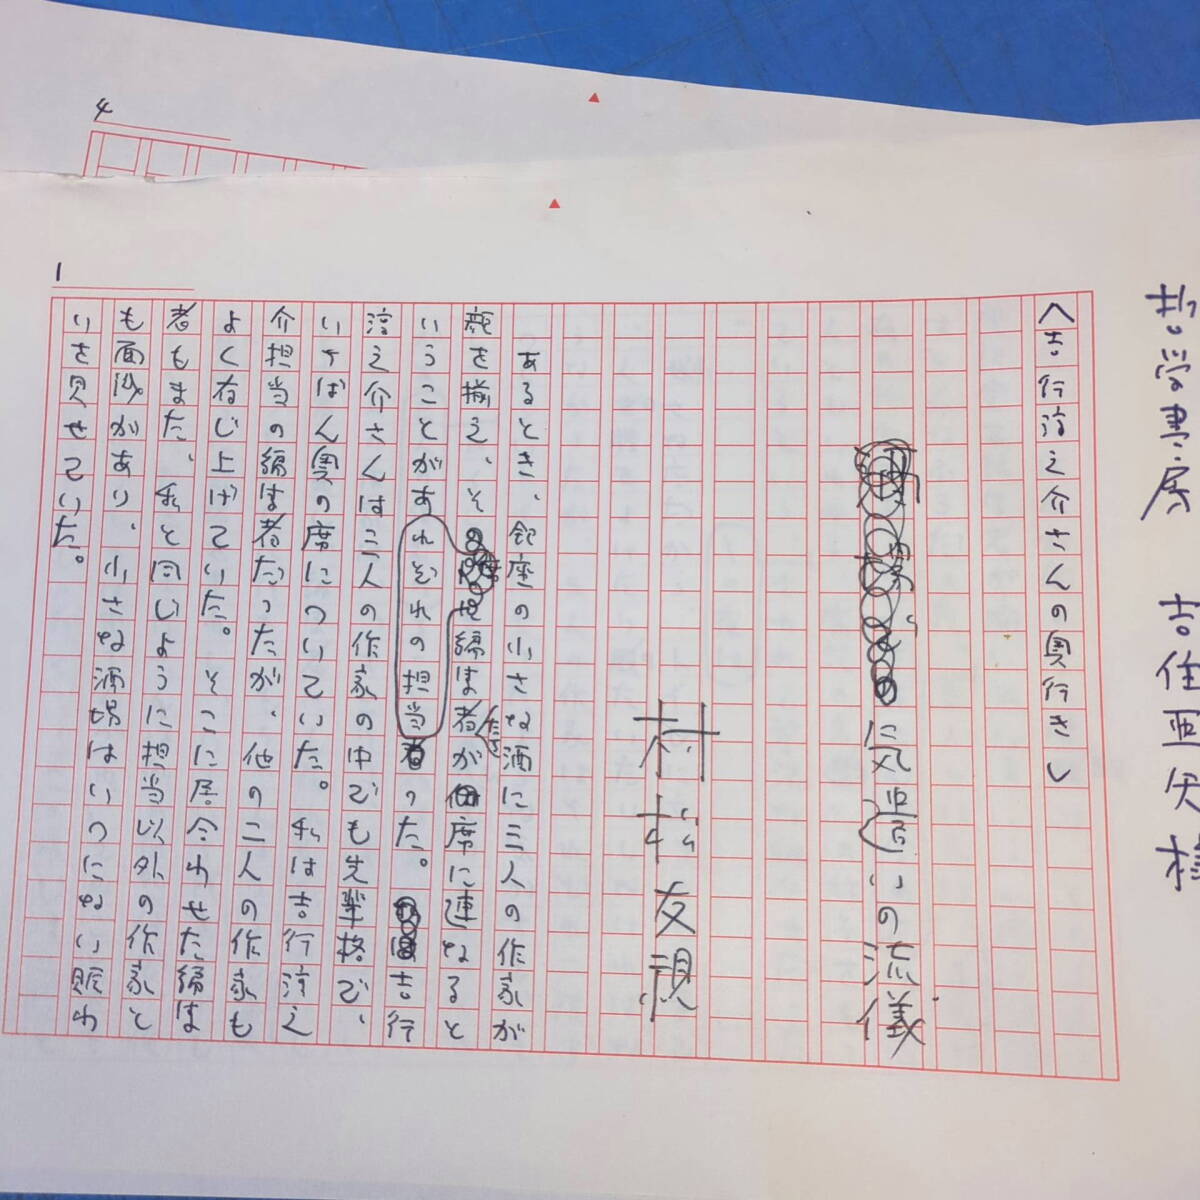 哲学書房 吉住亜矢様
へ吉行淳之介さんの奥行きし
に気遣いの流儀
村松友視
あるとき、銀座の小さな酒に三人の作家が
顔を揃え、その編集者たちが席に連なると
いうことがあった。吉行
れぞれの担当
淳之介さんは三人の作家の中でも先輩格で、
いちばん奥の席についていた。私は吉行淳之
介担当の編集者だったが、他の二人の作家も
よく存じ上げていた。そこに居合わせた編集
者もまた、私と同じように担当以外の作家と
も面識があり、小さな酒場はいつにない賑わ
いを見せていた。
1
4